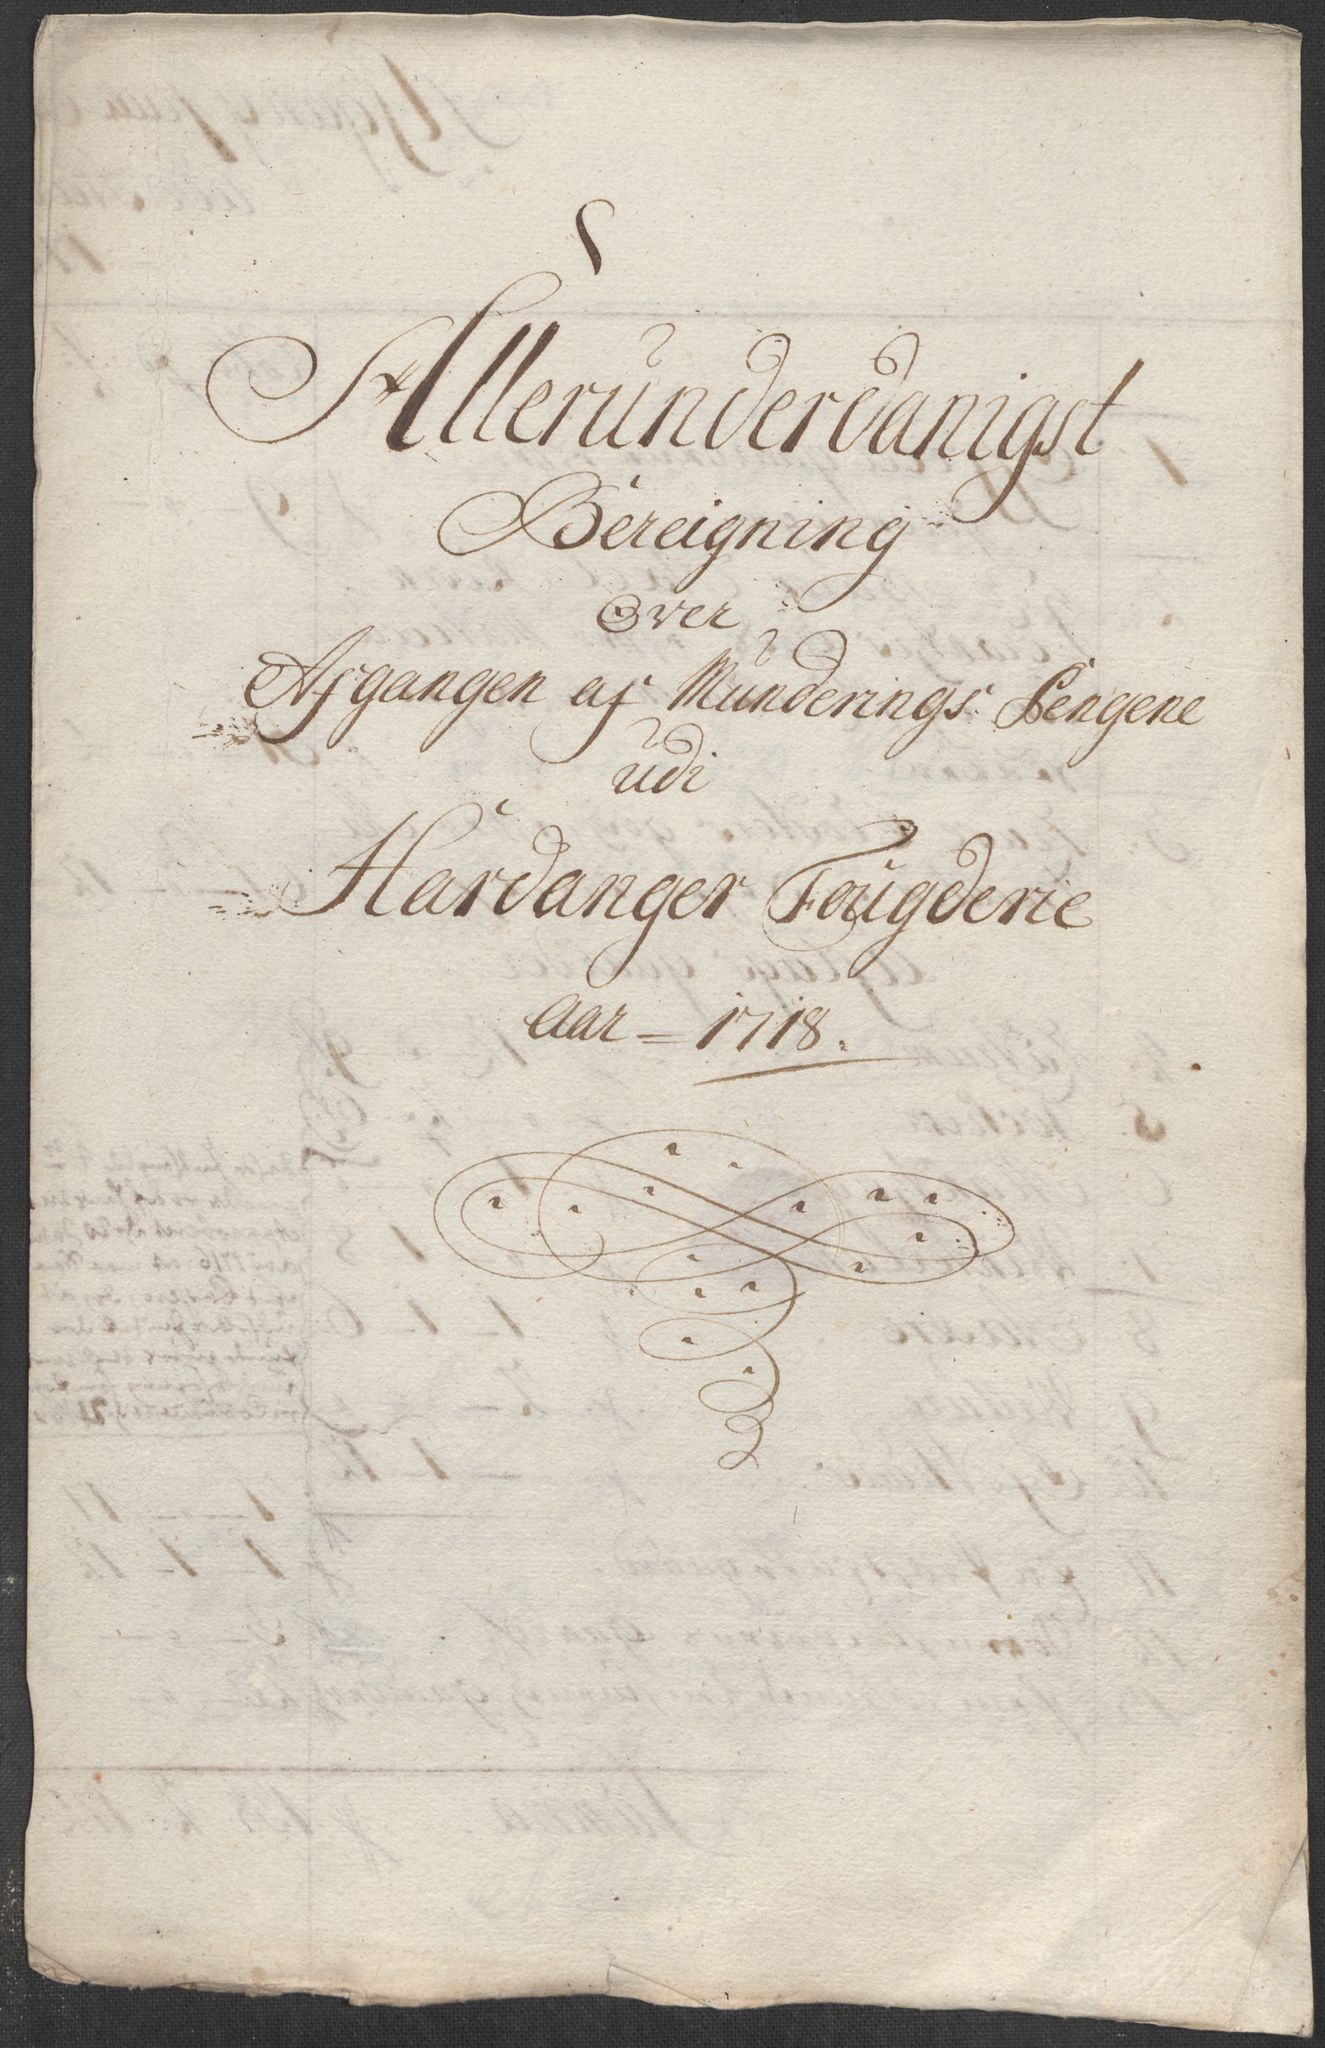 Allerunderdanigst
Bereigning
Over
Afgangen af Munderings Pengene
udi
Hardanger Fougderie
Aar = 1718.